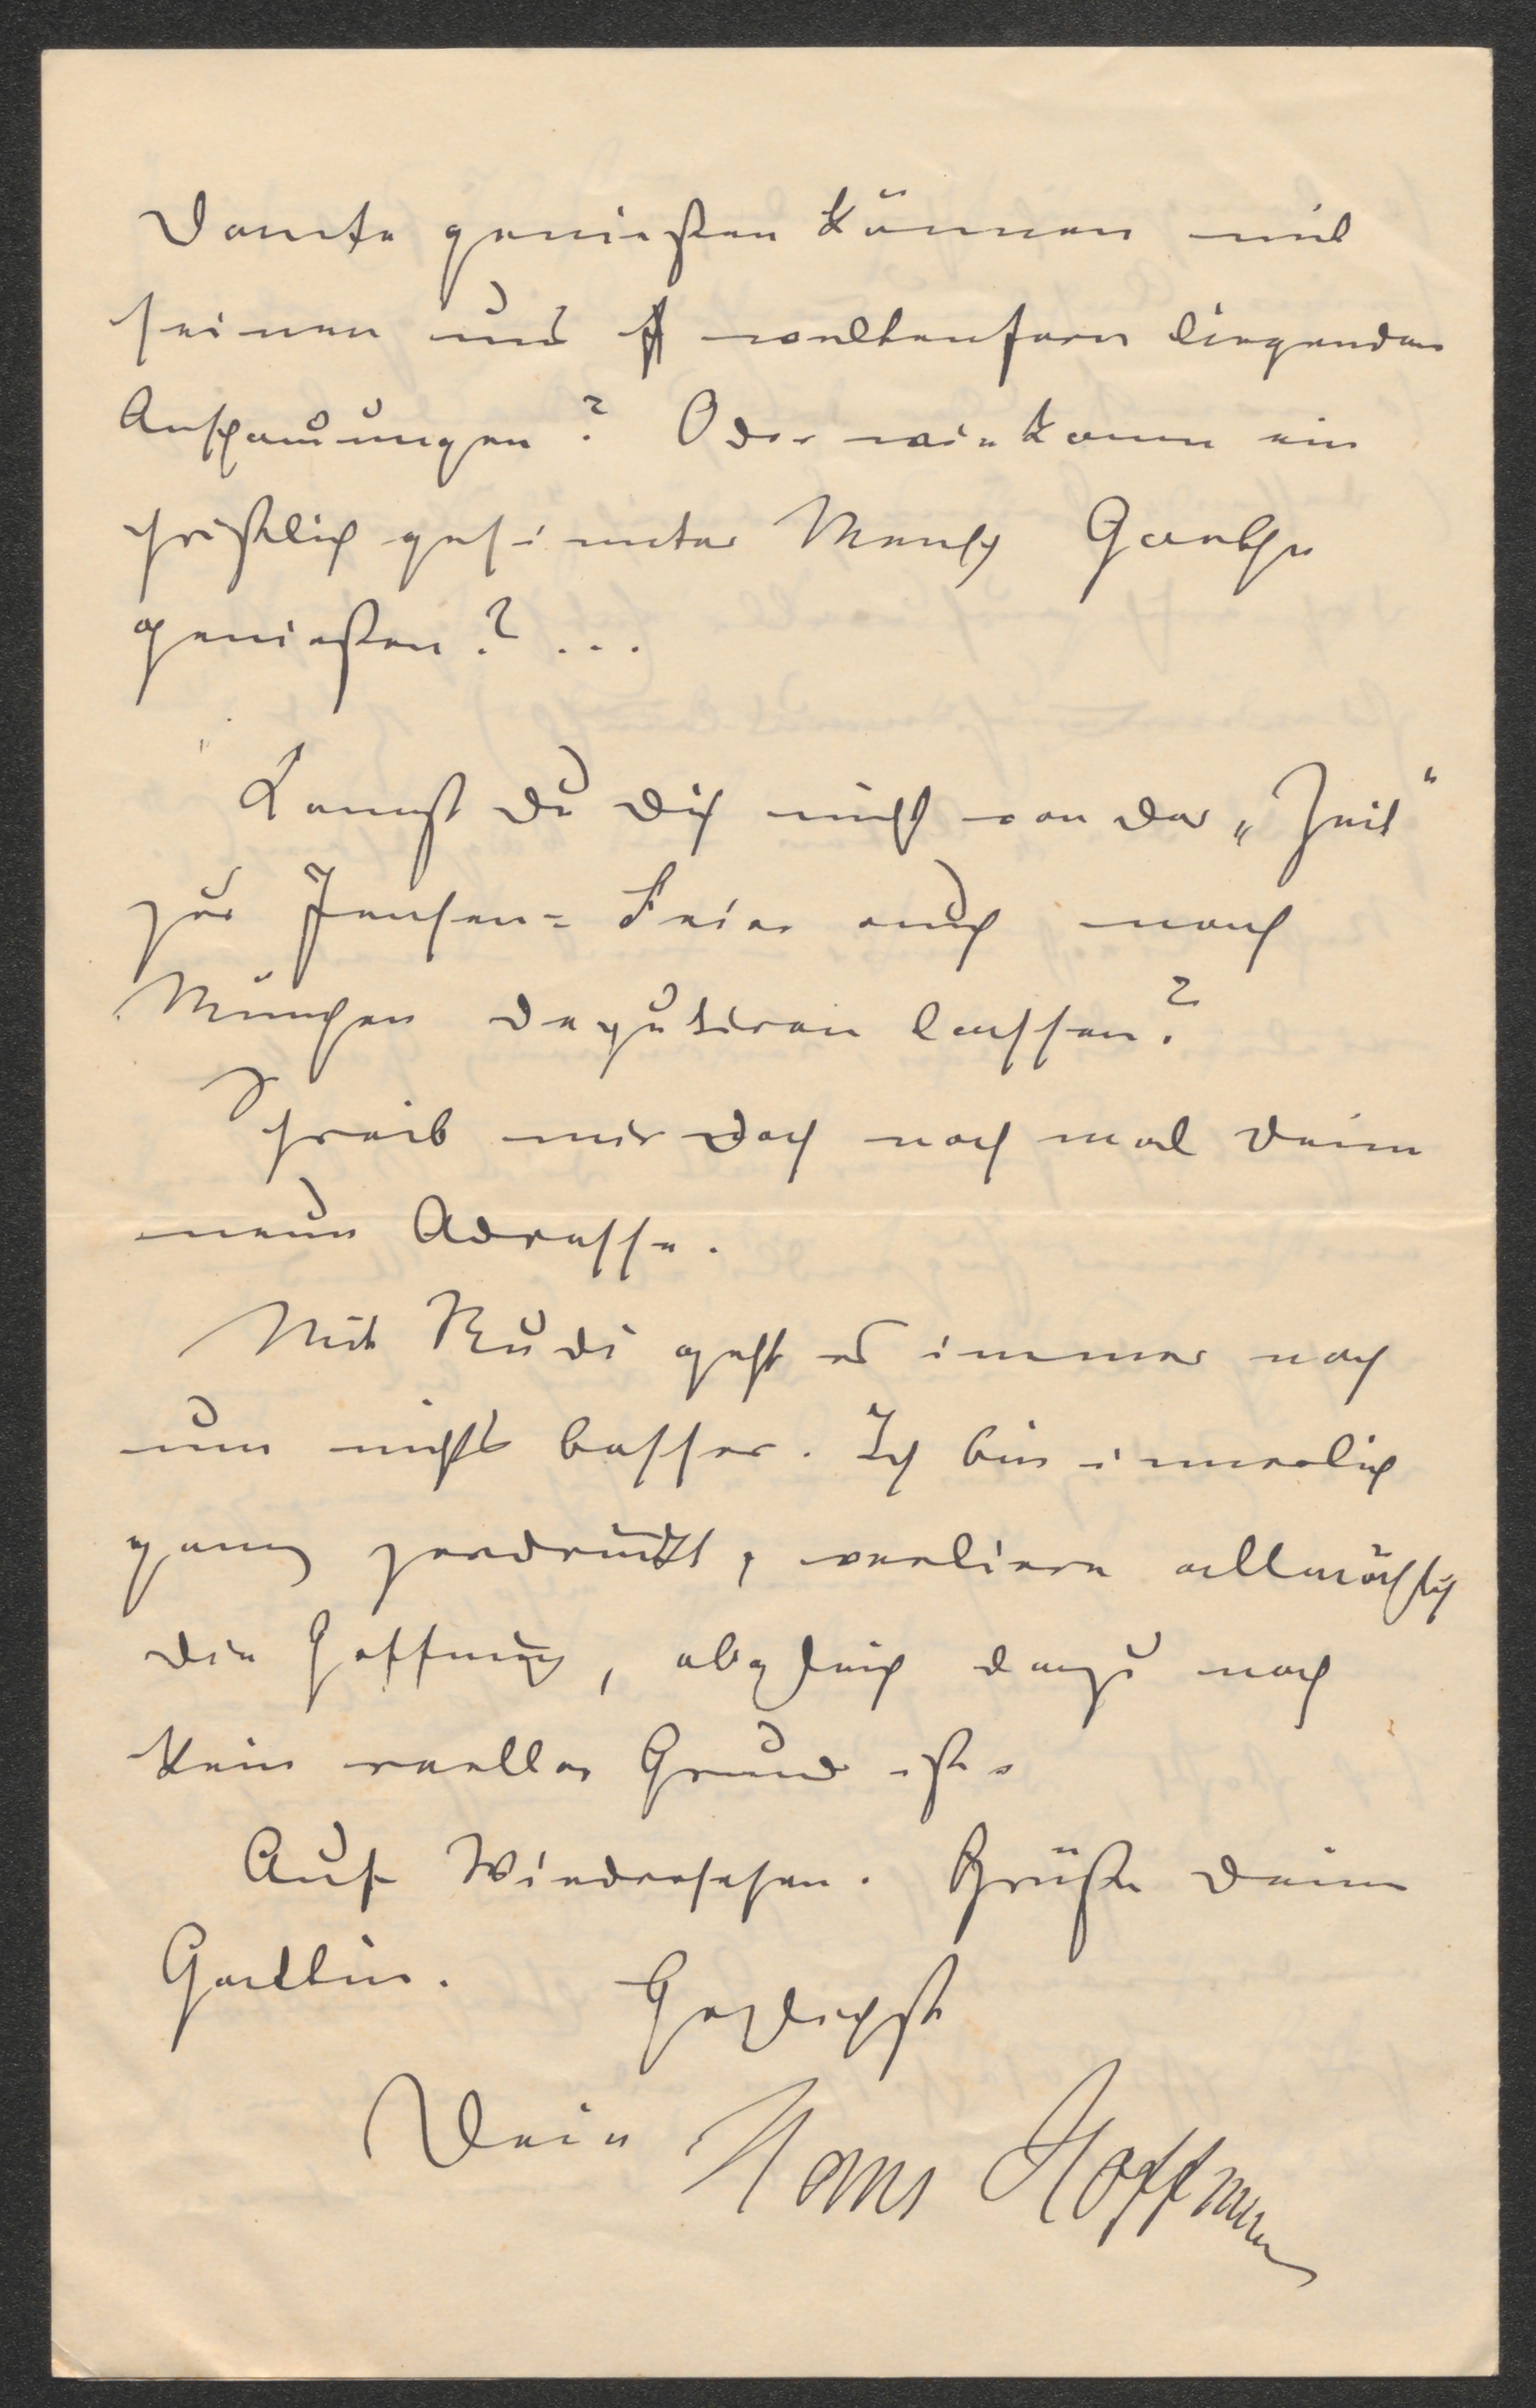 Dante genießen können mit
seinen uns weltenfern liegenden
Anschauungen? Oder wie kann ein
christlich gesinnter Mensch Goethe
genießen?...
Kannst Du Dich nicht von der „Zeit“
zur Jensen-Feier auch nach
München deputiren lassen?
Schreib mir doch noch mal Deine
neue Adresse.
Mit Rudi geht es immer noch
um nichts besser. Ich bin innerlich
ganz zerdrückt, verliere allmählich
die Hoffnung, obgleich dazu noch
kein reeller Grund ist.
Auf Wiedersehen. Grüße Deine
Gattin. Herzlichst
Dein Hans Hoffmann